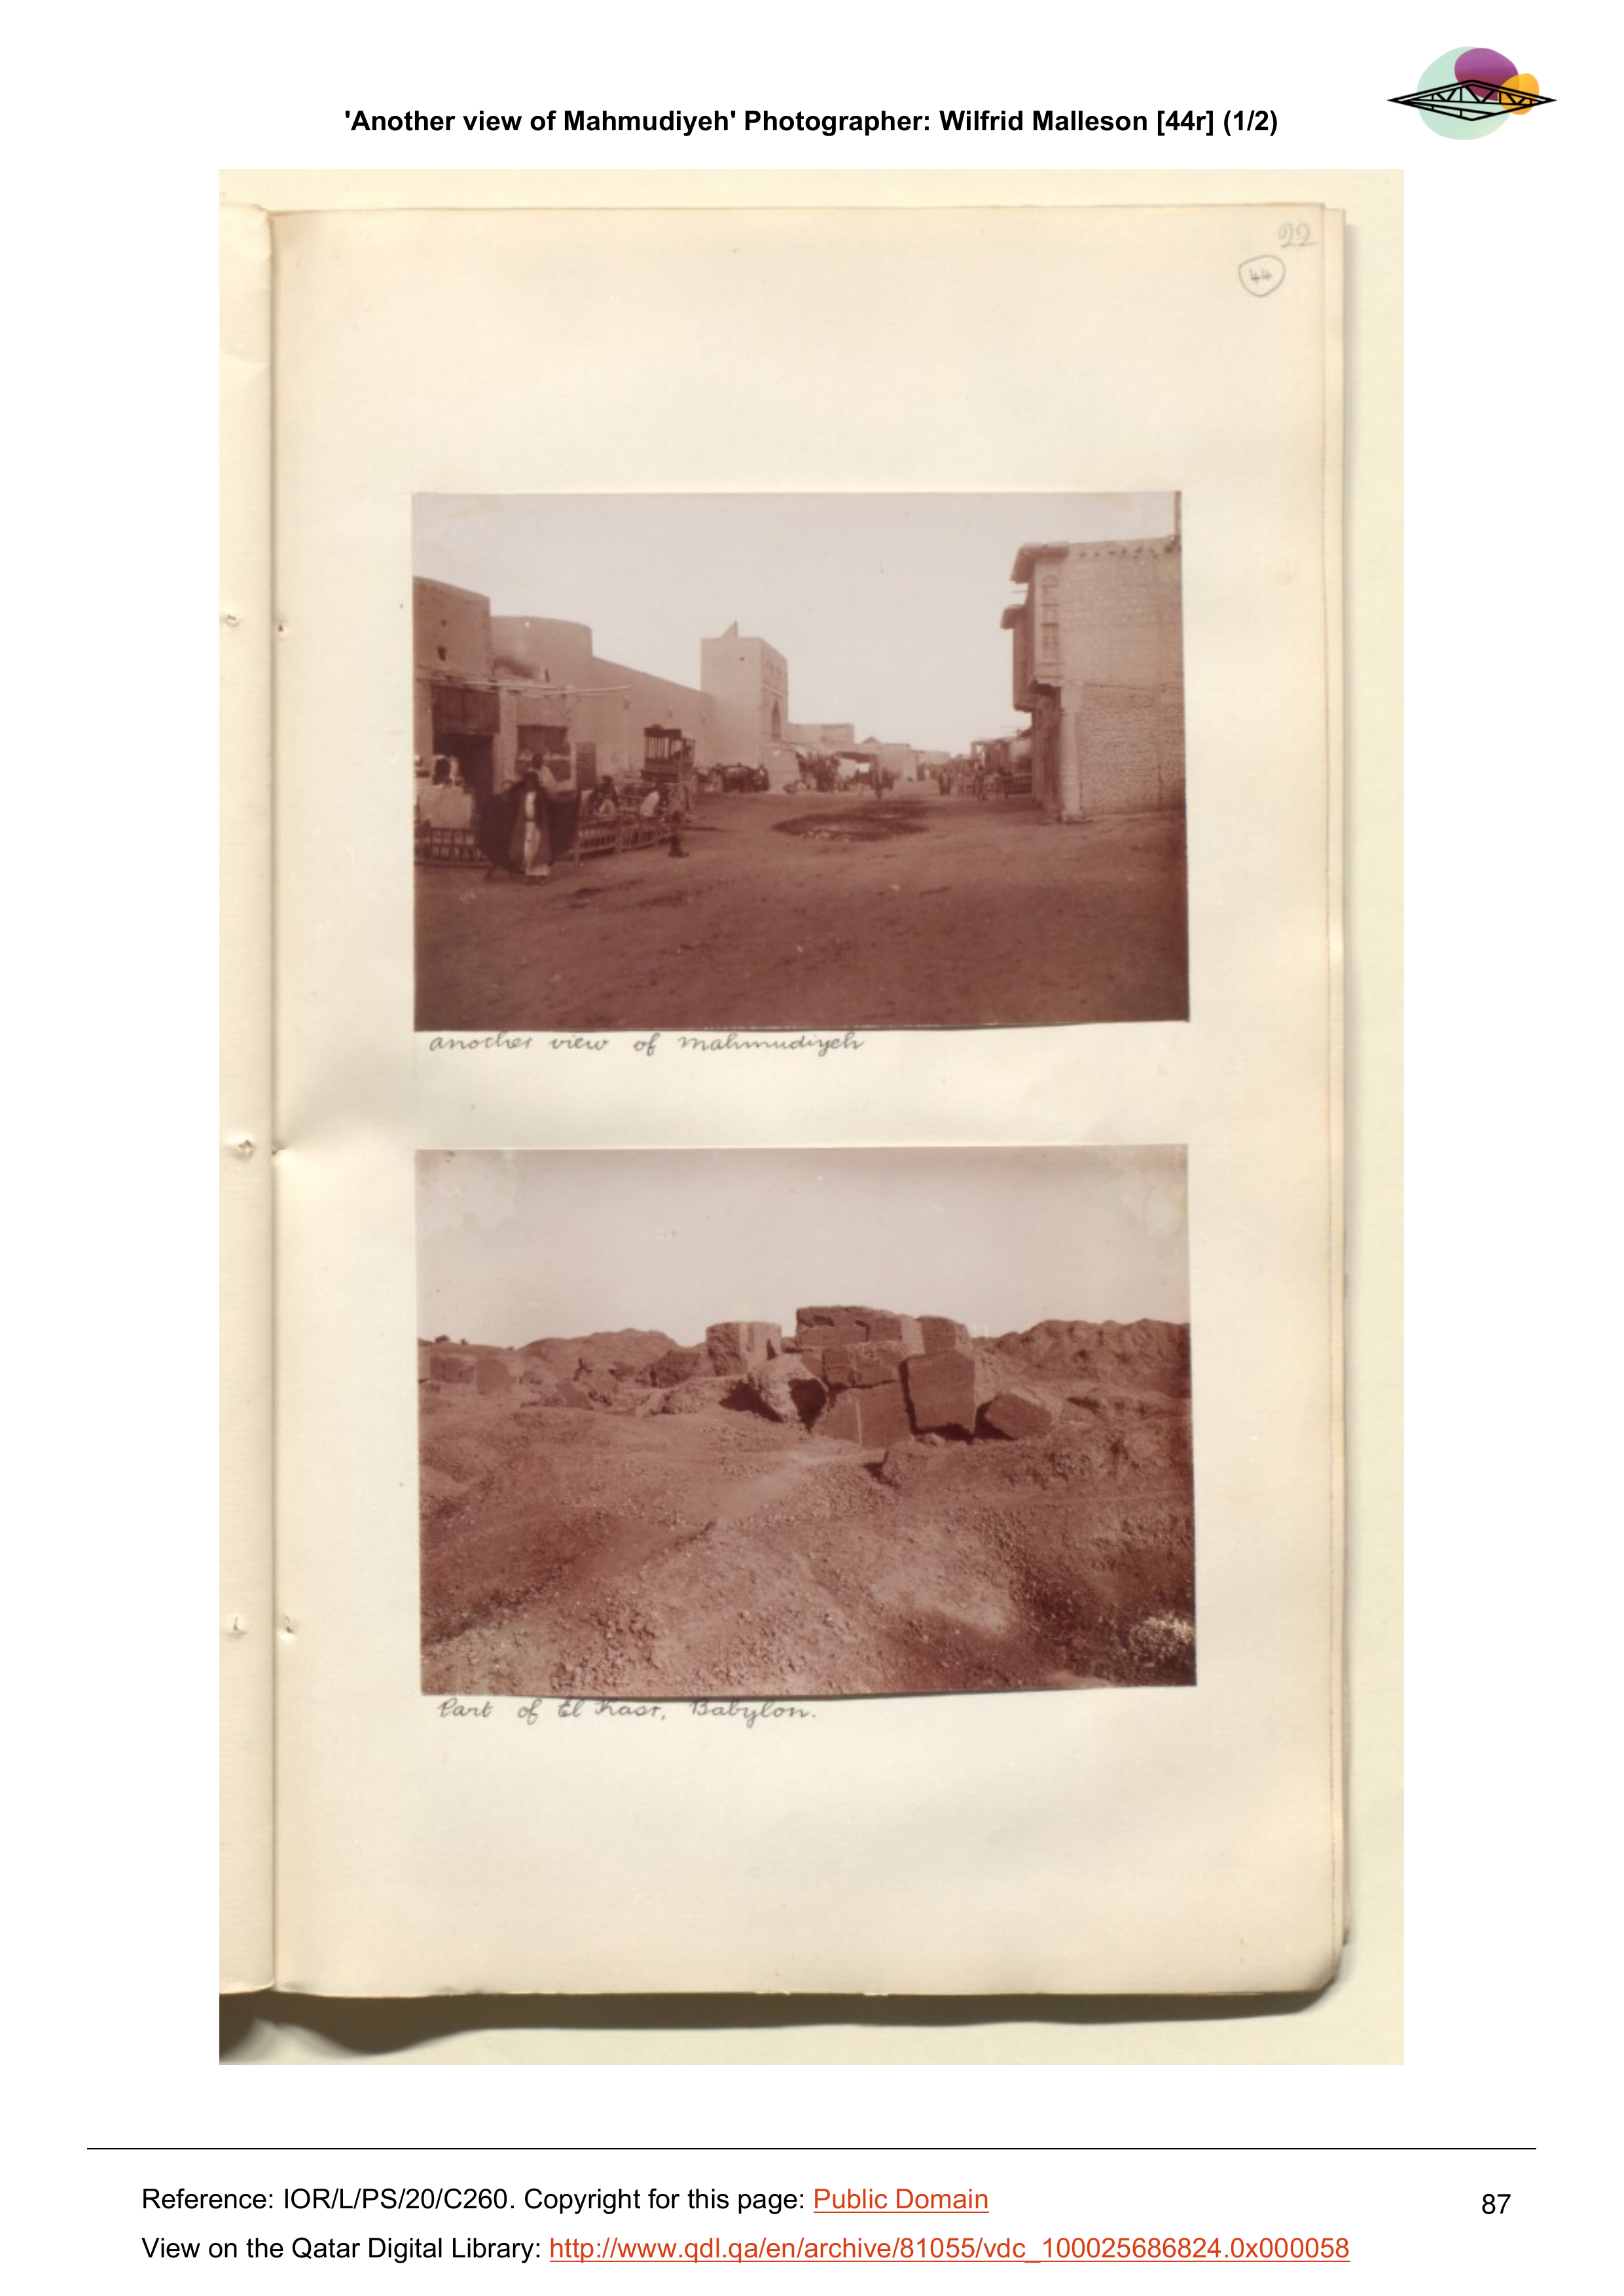 'Another view of Mahmudiyeh' Photographer: Wilfrid Malleson [44r] (1/2)
22
44
another view of mahmudiyeh
Part of El Kasr, Babylon.
Reference: IOR/L/PS/20/C260. Copyright for this page: Public Domain
87
View on the Qatar Digital Library: http://www.qdl.qa/en/archive/81055/vdc_100025686824.0x000058